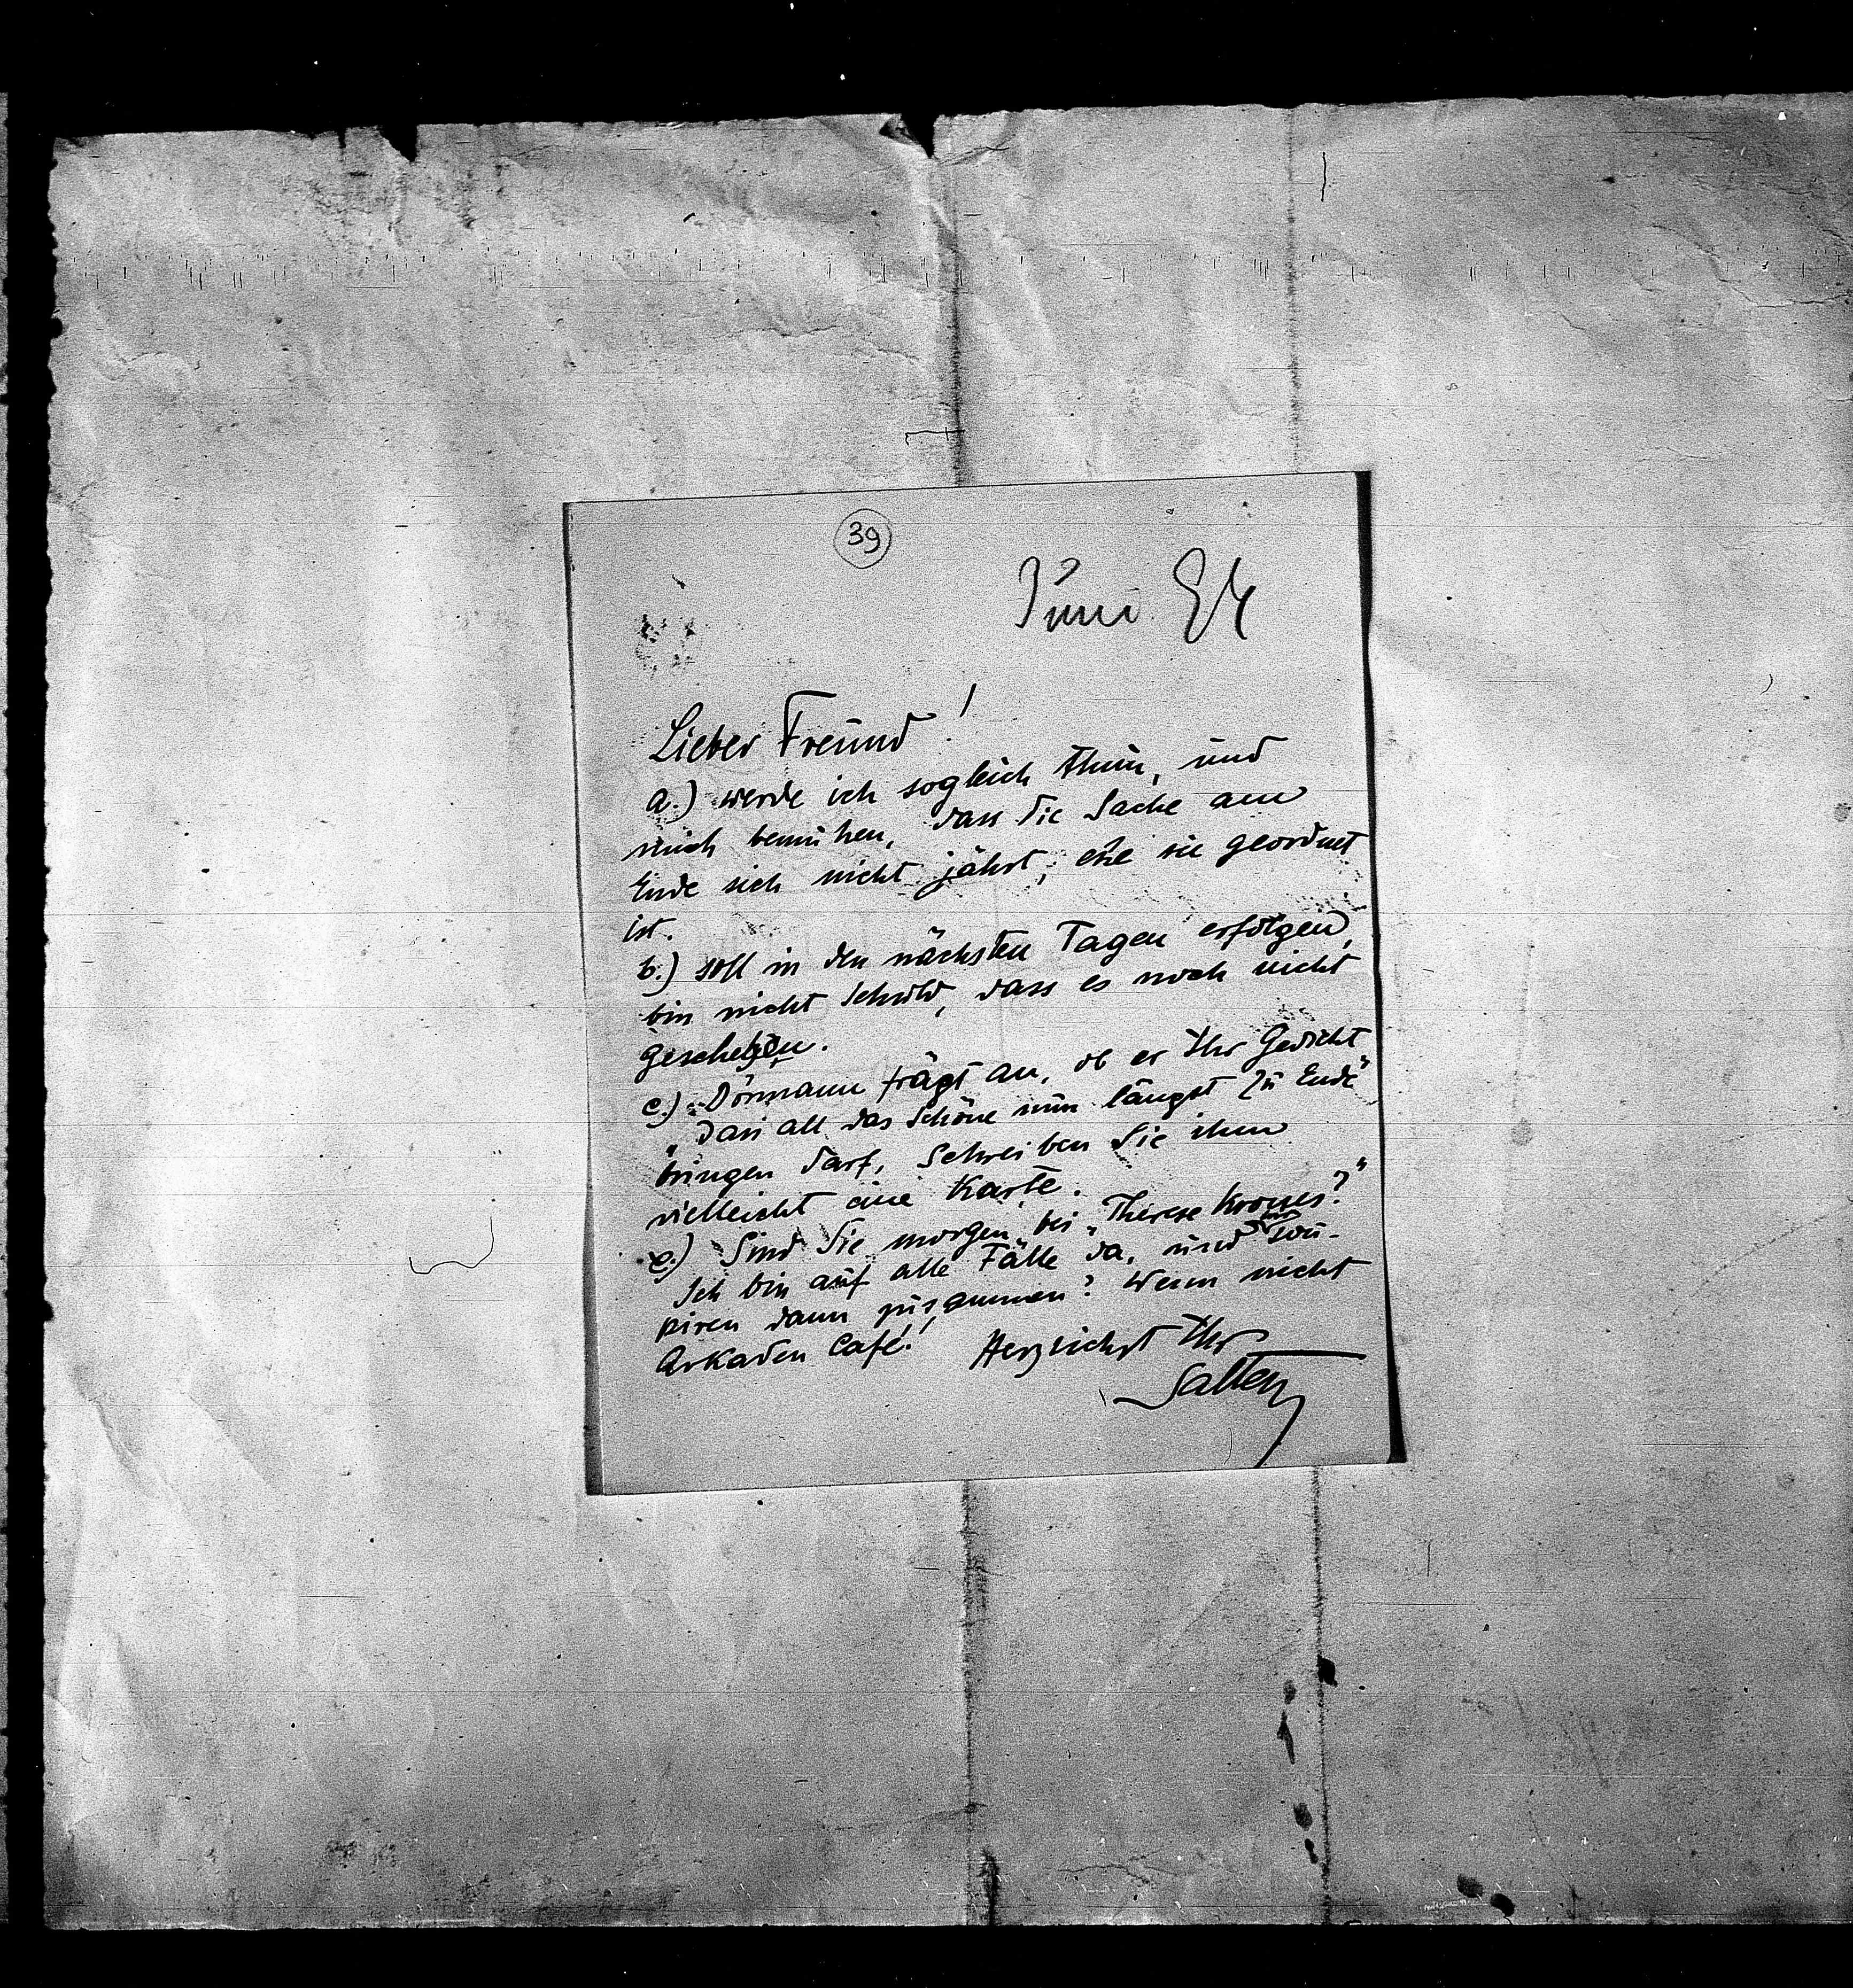 39
Juni 94
Lieber Freund!
a.) werde ich sogleich thun, und
mich bemühen, dass die Sache am
Ende sich nicht jährt, ehe sie geordnet
ist.
b.) soll in den nächsten Tagen erfolgen,
bin nicht Schuld, dass es noch nicht
geschehen.
c.) Dörmann frägt an, ob er Ihr Gedicht
„Dass all das Schöne nun längst zu Ende"
bringen darf, Schreiben Sie ihm
vielleicht eine Karte.
e.) Sind Sie morgen bei „Therese Krones?"
Ich bin auf alle Fälle da, und wir sou-
piren dann zusammen? Wenn nicht
Arkaden Café! Herzlichst Ihr
Salten